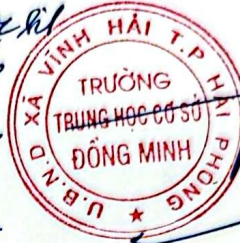 U.B.N.D XÃ VĨNH HẢI T.P HẢI PHÒNG
TRƯỜNG
TRUNG HỌC CƠ SỞ
ĐỒNG MINH